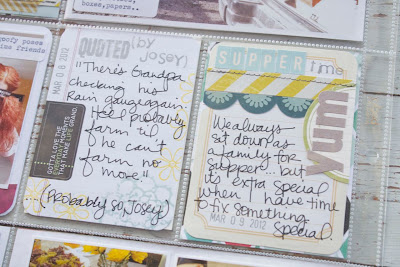 noise, papers.
goofy poses
time friends
MAR 08 2012
QUOTED
(by
Josey)
"There's Grandpa
checking his
Rain gauge again.
He'll probably
farm til
he can't
farm no
more"
...(Probably so, Josey)
GOTTA LOVE THE
EVERYDAY MOMENTS
THAT MAKE LIFE GRAND
SUPPER time
yum
We always
sit down as
a family for
supper... but
its extra special
when I have time
to fix something
special.
MAR 09 2012